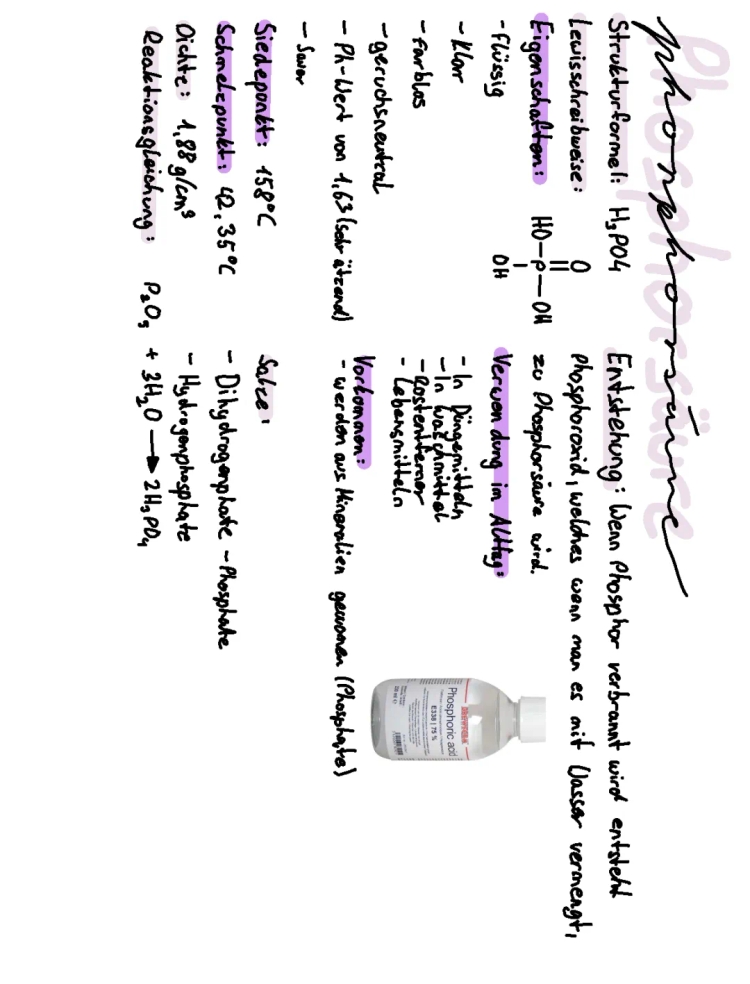 Phosphorsäure
Strukturformel: H₃PO4
Lewisschreibweise:
O
HO-P-OH
OH
Eigenschaften:
- flüssig
- klar
- farblos
- geruchsneutral
- Ph-Wert von 1,63 (sehr ätzend)
- Sauer
Siedepunkt: 158°C
Schmelzpunkt: 42,35°C
Dichte: 1,88 g/cm³
Reaktionsgleichung: P₂O₅ + 3H₂O → 2H₃PO₄
Entstehung: Wenn Phosphor verbrannt wird entsteht
Phosphoroxid, welches wenn man es mit Wasser vermengt,
zu Phosphorsäure wird.
Verwendung im Alltag:
- In Düngemitteln
- In Waschmittel
- Rostentferner
- Lebensmitteln
Vorkommen:
- werden aus Mineralien gewonnen (Phosphate)
Salze:
- Dihydrogenphate - Phosphate
- Hydrogenphosphate
Phosphoric acid
E338 | 75 %